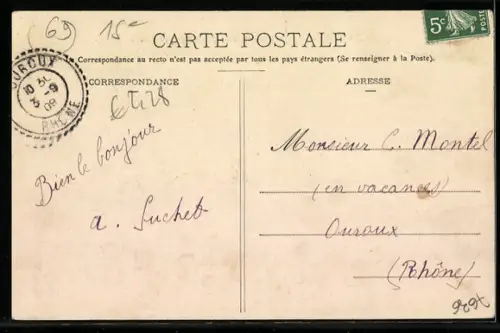 (69) 15-
5c
CARTE POSTALE
Correspondance au recto n'est pas acceptée par tous les pays étrangers (Se renseigner à la Poste).
CORRESPONDANCE
ADRESSE
OUROUX
3 -9
09
RHÔNE
Bien le bonjour
a. Suchet
Monsieur C. Montel
(en vacances)
Ouroux
(Rhône)